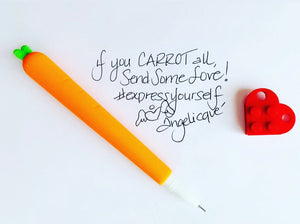 if you CARROT all,
Send Some Love!
#expressyourself
Angelicque